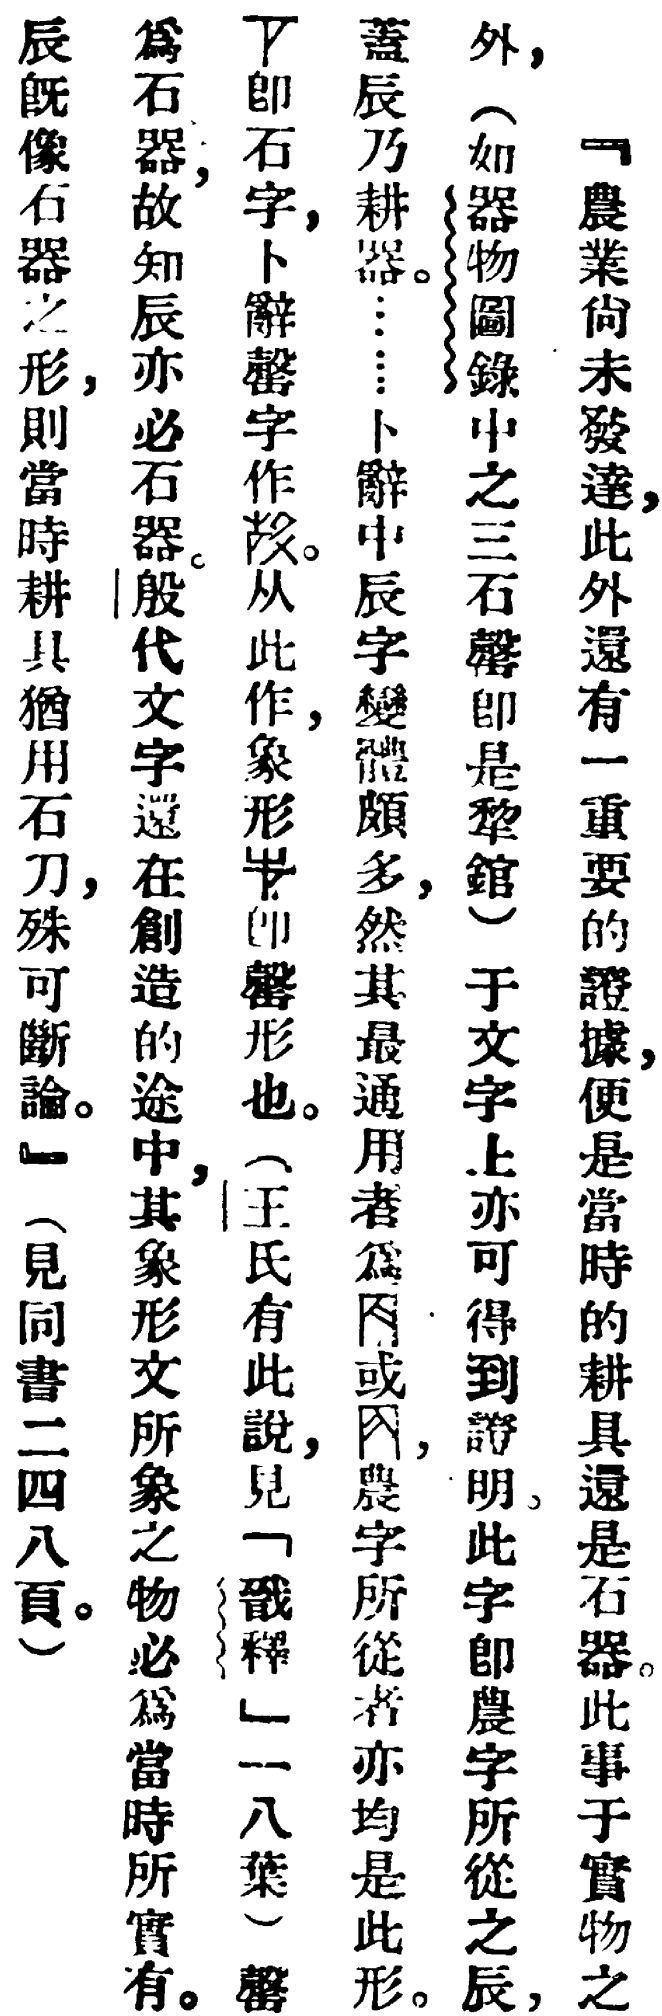 『農業尙未發達，此外還有一重要的證據，便是當時的耕具還是石器。此事于實物之
外，（如器物圖錄中之三石磬卽是犂錧）于文字上亦可得到證明。此字卽農字所從之辰，
蓋辰乃耕器。……卜辭中辰字變體頗多，然其最通用者爲或，農字所從者亦均是此形。
卽石字，卜辭磬字作。从此作，象形卽磬形也。（王氏有此說，見「戩釋」一八葉）磬
爲石器，故知辰亦必石器。殷代文字還在創造的途中，其象形文所象之物必爲當時所實有。
辰旣像石器之形，則當時耕具猶用石刀，殊可斷論。』（見同書二四八頁。）